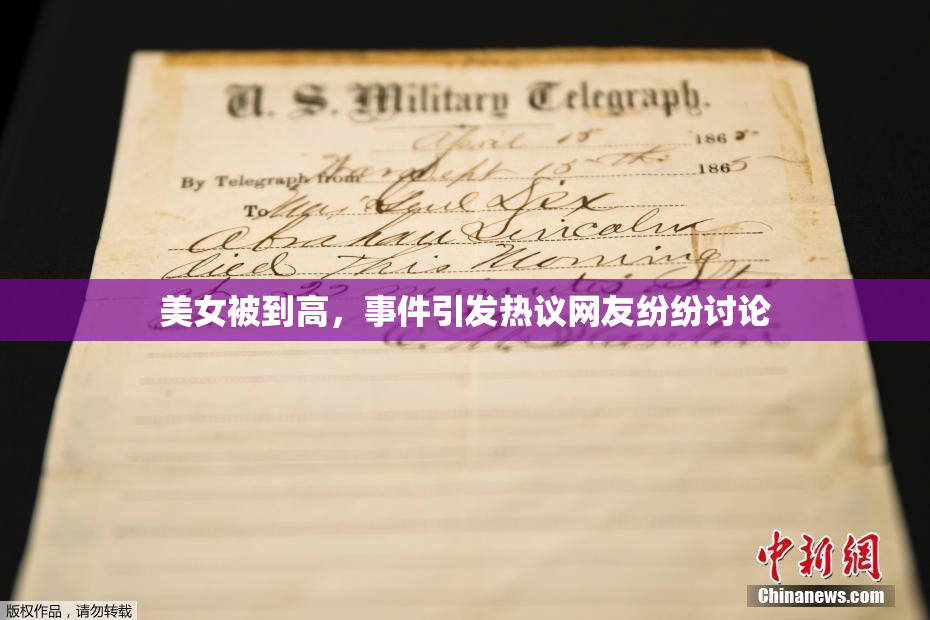 U. S. Military Telegraph.
April 15 1865
By Telegraph from War Dept 15th 1865
To Maj Genl Dix
Abraham Lincoln
died This Morning
at 22 minutes after
美女被到高，事件引发热议网友纷纷讨论
E. M. Stanton
中新网
Chinanews.com
版权作品，请勿转载